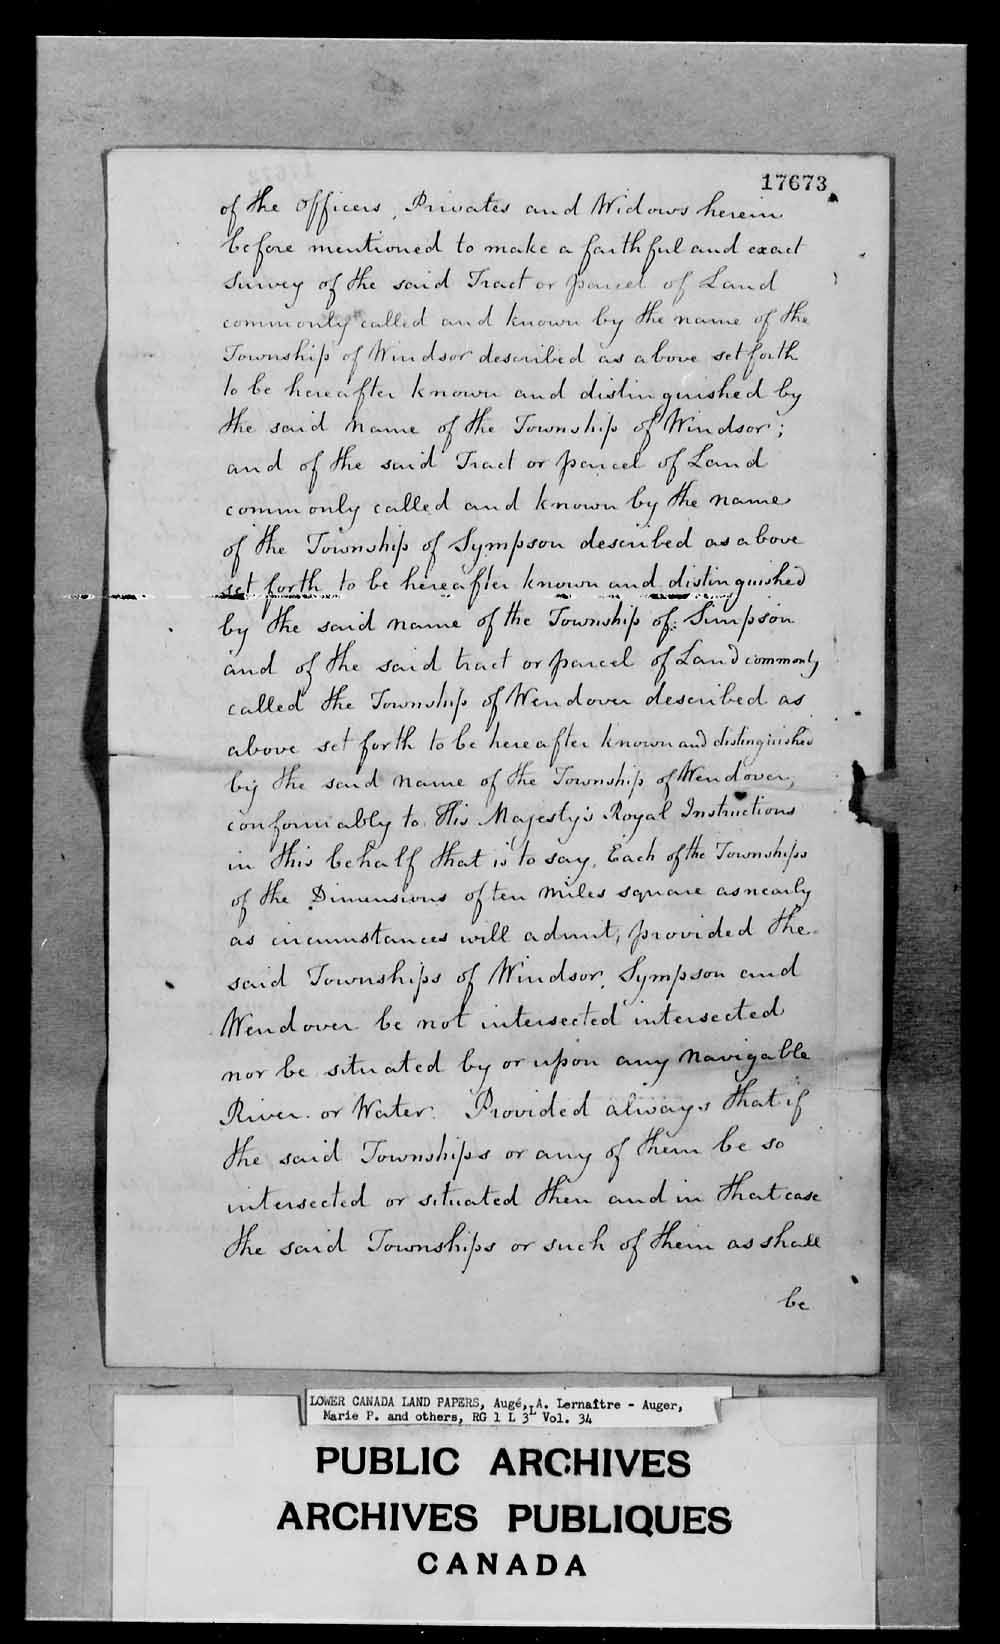 17673
of the Officers, Privates and Widows herein
before mentioned to make a faithful and exact
Survey of the said Tract or parcel of Land
commonly called and known by the name of the
Township of Windsor described as above set forth
to be hereafter known and distinguished by
the said Name of the Township of Windsor;
and of the said Tract or parcel of Land
commonly called and known by the name
of the Township of Sympson described as above
set forth to be hereafter known and distinguished
by the said name of the Township of Simpson
and of the said tract or parcel of Land commonly
called the Township of Wendover described as
above set forth to be hereafter known and distinguished
by the said name of the Township of Wendover,
conformably to His Majesty's Royal Instructions
in this behalf that is to say, Each of the Townships
of the Dimensions of ten miles square as nearly
as circumstances will admit, provided the
said Townships of Windsor, Sympson and
Wendover be not intersected intersected
nor be situated by or upon any Navigable
River or Water. Provided always that if
the said Townships or any of them be so
intersected or situated then and in that case
the said Townships or such of them as shall
be
LOWER CANADA LAND PAPERS, Augé, A. Lernaître - Auger,
Marie P. and others, RG 1 L 3L Vol. 34
PUBLIC ARCHIVES
ARCHIVES PUBLIQUES
CANADA